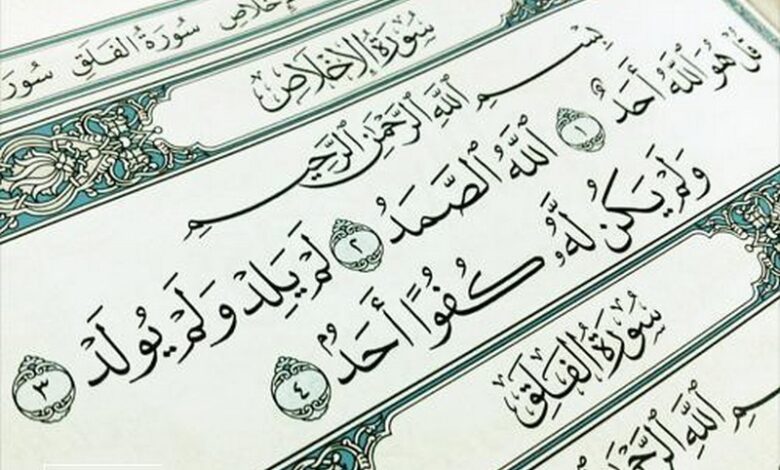 إخلاص سورة الفلق سورة
سورة الإخلاص
بسم الله الرحمن الرحيم
قل هو الله أحد ١ الله الصمد ٢ لم يلد ولم يولد ٣
ولم يكن له كفوا أحد ٤
سورة الفلق
الله